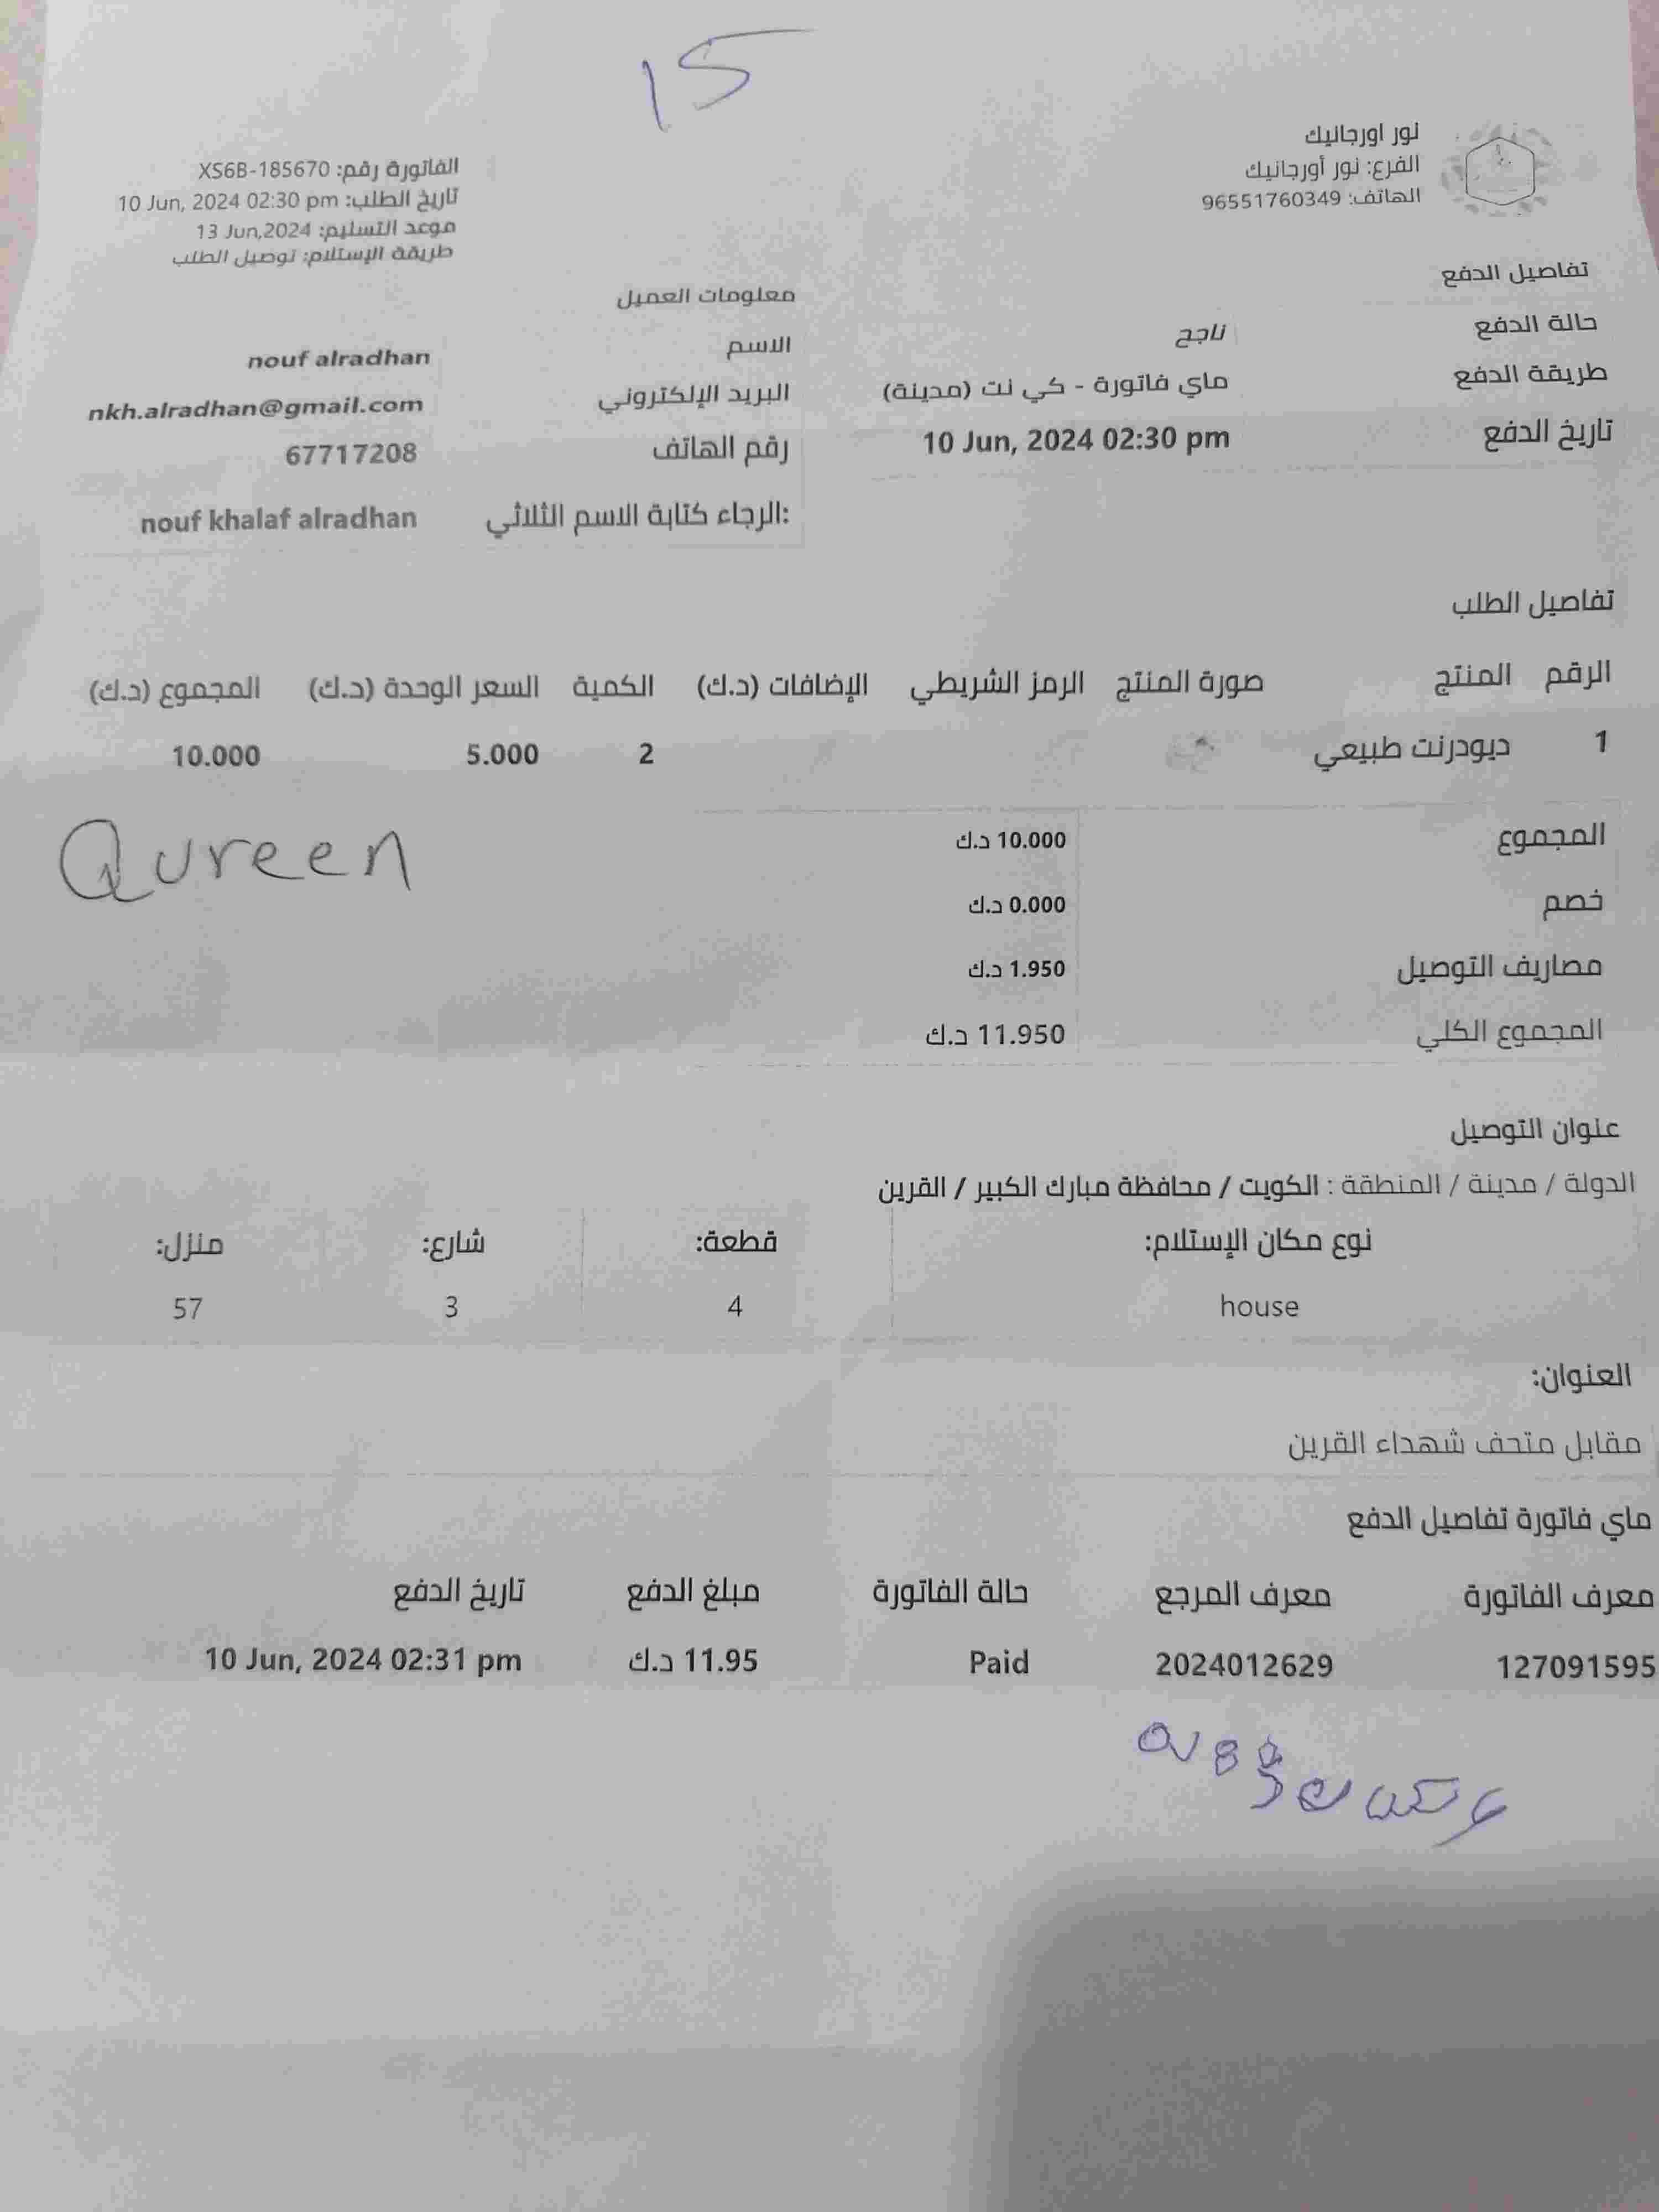 15
نور اورجانيك
الفرع: نور أورجانيك
الهاتف: 96551760349
الفاتورة رقم: XS6B-185670
تاريخ الطلب: 10 Jun, 2024 02:30 pm
موعد التسليم: 13 Jun,2024
طريقة الإستلام: توصيل الطلب
تفاصيل الدفع
حالة الدفع ناجح
طريقة الدفع ماي فاتورة - كي نت (مدينة)
تاريخ الدفع 10 Jun, 2024 02:30 pm
معلومات العميل
الاسم nouf alradhan
البريد الإلكتروني nkh.alradhan@gmail.com
رقم الهاتف 67717208
الرجاء كتابة الاسم الثلاثي: nouf khalaf alradhan
تفاصيل الطلب
الرقم المنتج صورة المنتج الرمز الشريطي الإضافات (د.ك) الكمية السعر الوحدة (د.ك) المجموع (د.ك)
1 ديودرنت طبيعي 2 5.000 10.000
المجموع 10.000 د.ك
Qureen
خصم 0.000 د.ك
مصاريف التوصيل 1.950 د.ك
المجموع الكلي 11.950 د.ك
عنوان التوصيل
الدولة / مدينة / المنطقة : الكويت / محافظة مبارك الكبير / القرين
نوع مكان الإستلام: قطعة: شارع: منزل:
house 4 3 57
العنوان:
مقابل متحف شهداء القرين
ماي فاتورة تفاصيل الدفع
معرف الفاتورة معرف المرجع حالة الفاتورة مبلغ الدفع تاريخ الدفع
127091595 2024012629 Paid 11.95 د.ك 10 Jun, 2024 02:31 pm